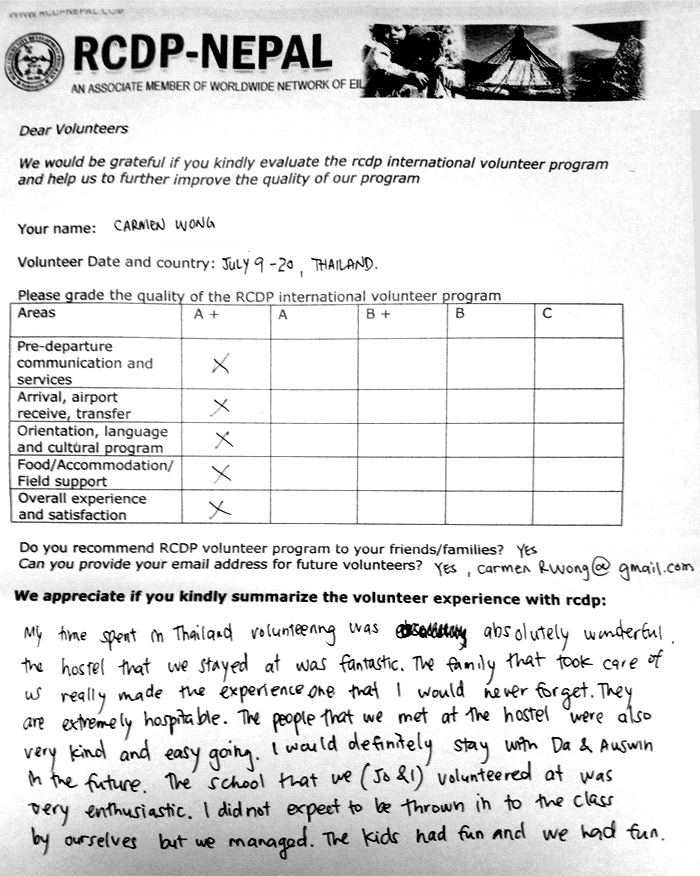 www.RCDPNEPAL.COM
RCDP-NEPAL
AN ASSOCIATE MEMBER OF WORLDWIDE NETWORK OF EIL
Dear Volunteers
We would be grateful if you kindly evaluate the rcdp international volunteer program
and help us to further improve the quality of our program
Your name: CARMEN WONG
Volunteer Date and country: JULY 9-20, THAILAND.
Please grade the quality of the RCDP international volunteer program
Areas A + A B + B C
Pre-departure
communication and X
services
Arrival, airport X
receive, transfer
Orientation, language X
and cultural program
Food/Accommodation/ X
Field support
Overall experience X
and satisfaction
Do you recommend RCDP volunteer program to your friends/families? YES
Can you provide your email address for future volunteers? YES, carmenRwong@gmail.com
We appreciate if you kindly summarize the volunteer experience with rcdp:
My time spent in Thailand volunteering was absolutely wonderful.
The hostel that we stayed at was fantastic. The family that took care of
us really made the experience one that I would never forget. They
are extremely hospitable. The people that we met at the hostel were also
very kind and easy going. I would definitely stay with Da & Auswin
in the future. The school that we (Jo & I) volunteered at was
very enthusiastic. I did not expect to be thrown in to the class
by ourselves but we managed. The kids had fun and we had fun.